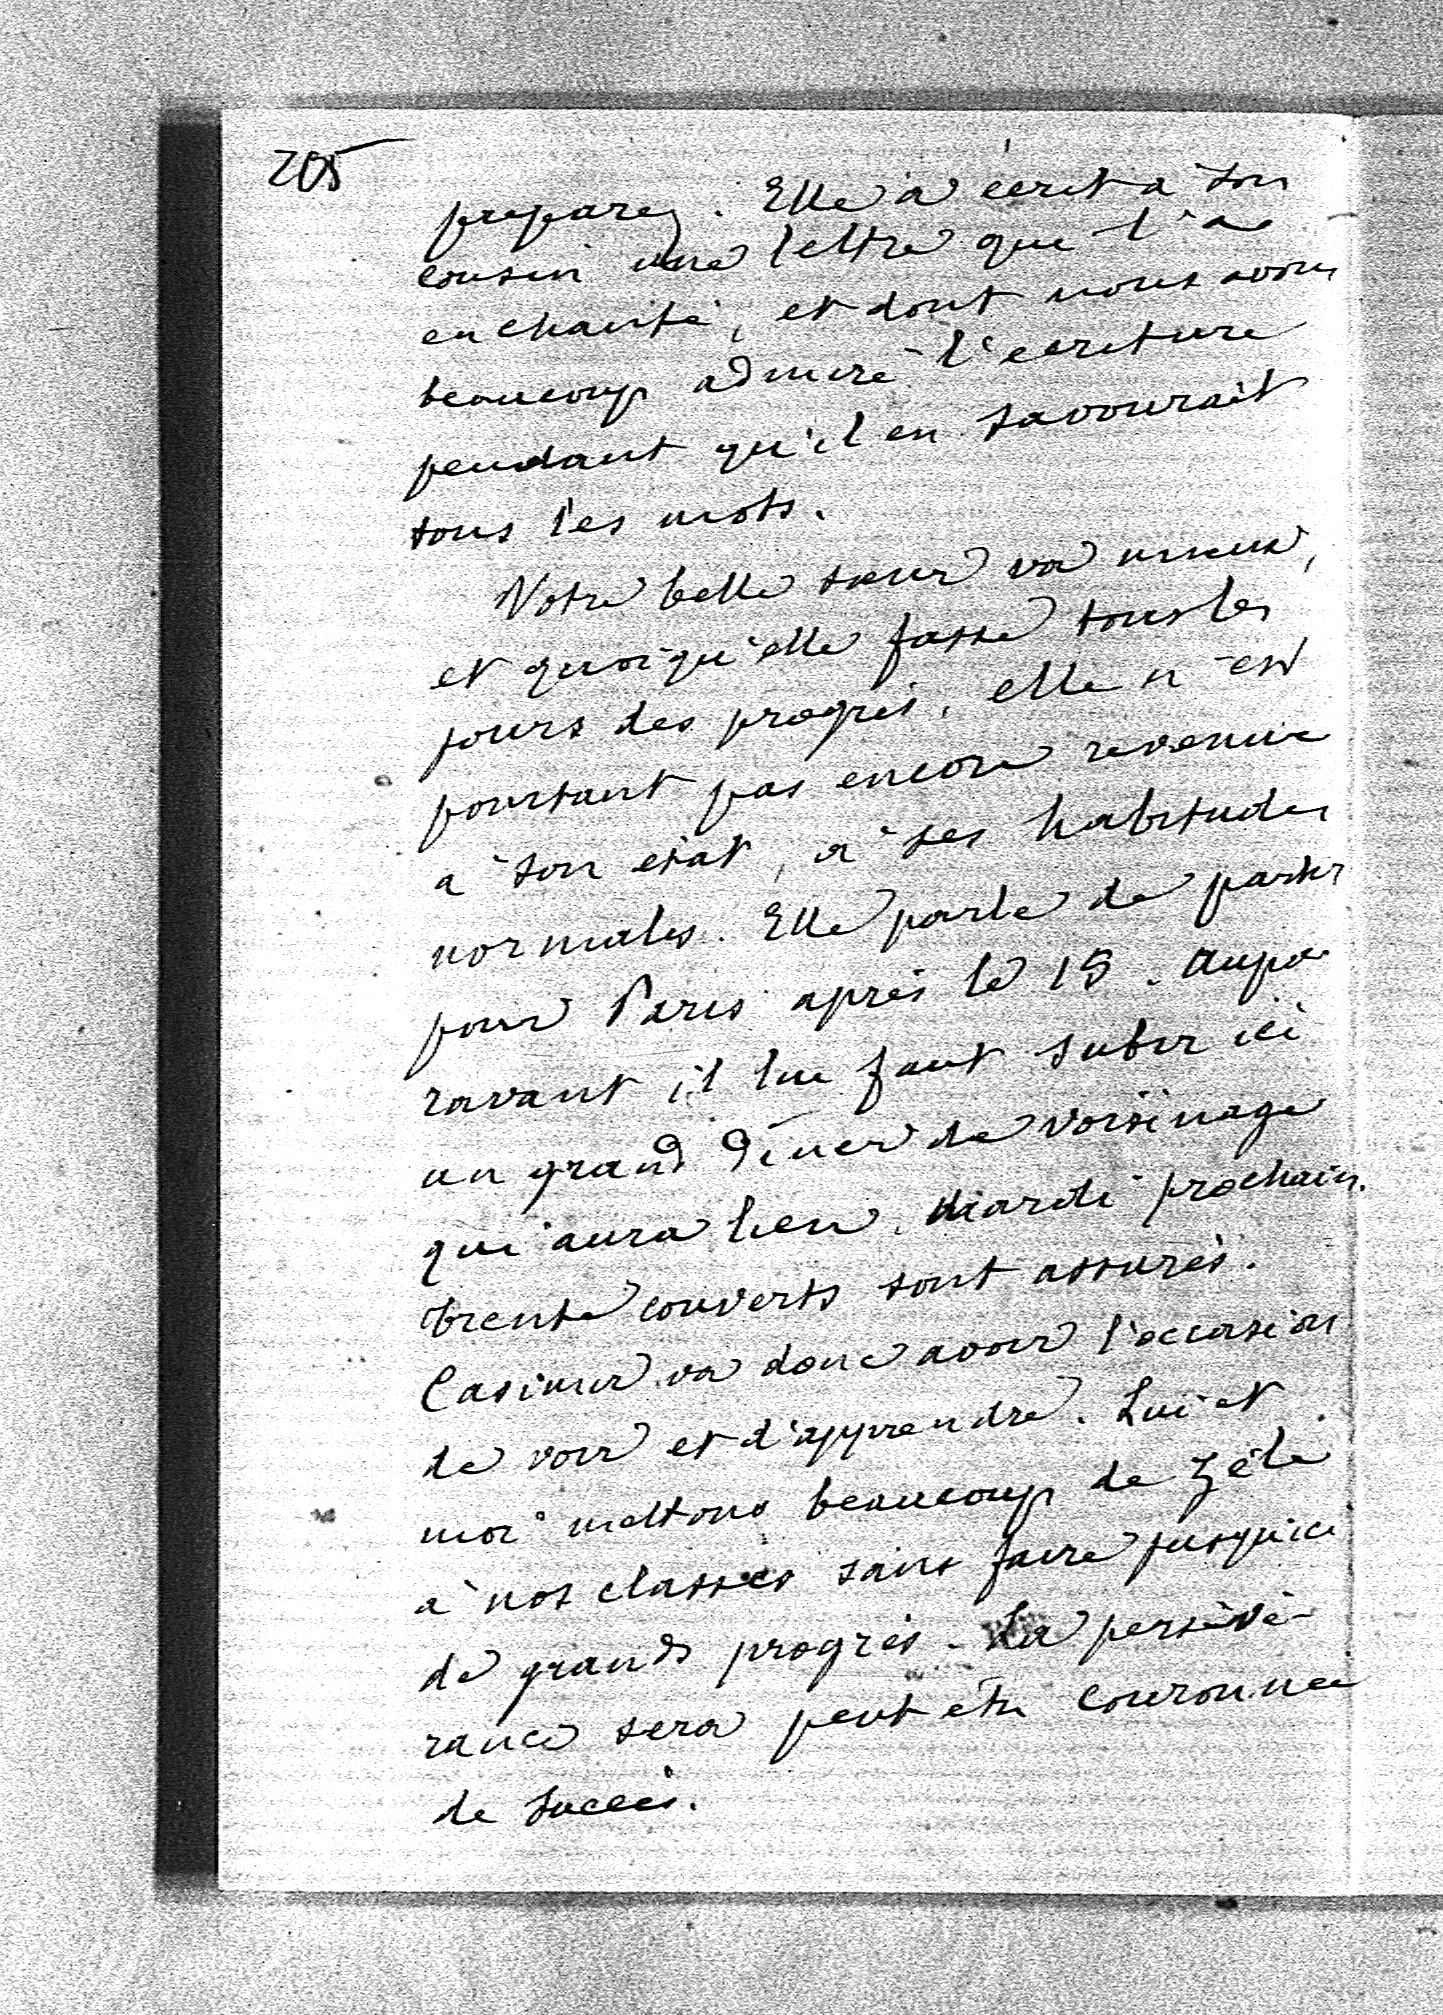 205
preparez. Elle a écrit à son
cousin une lettre que l'a
enchanté, et dont nous avons
beaucoup admiré l'écriture
pendant qu'il en savourait
tous les mots.
Votre belle sœur va mieux,
et quoiqu'elle fasse tous les
jours des progrès, elle n'est
pourtant pas encore revenue
à son état, à ses habitudes
normales. Elle parle de partir
pour Paris après le 15. Aupa
ravant il lui faut subir ici
un grand dîner de voisinage
qui aura lieu, mardi prochain.
trente couverts sont assurés.
Casimir va donc avoir l'occasion
de voir et d'apprendre. Lui et
moi mettons beaucoup de zèle
à nos classes sans faire jusqu'ici
de grands progrès. La persévé-
rance sera peut etre couronnée
de succès.